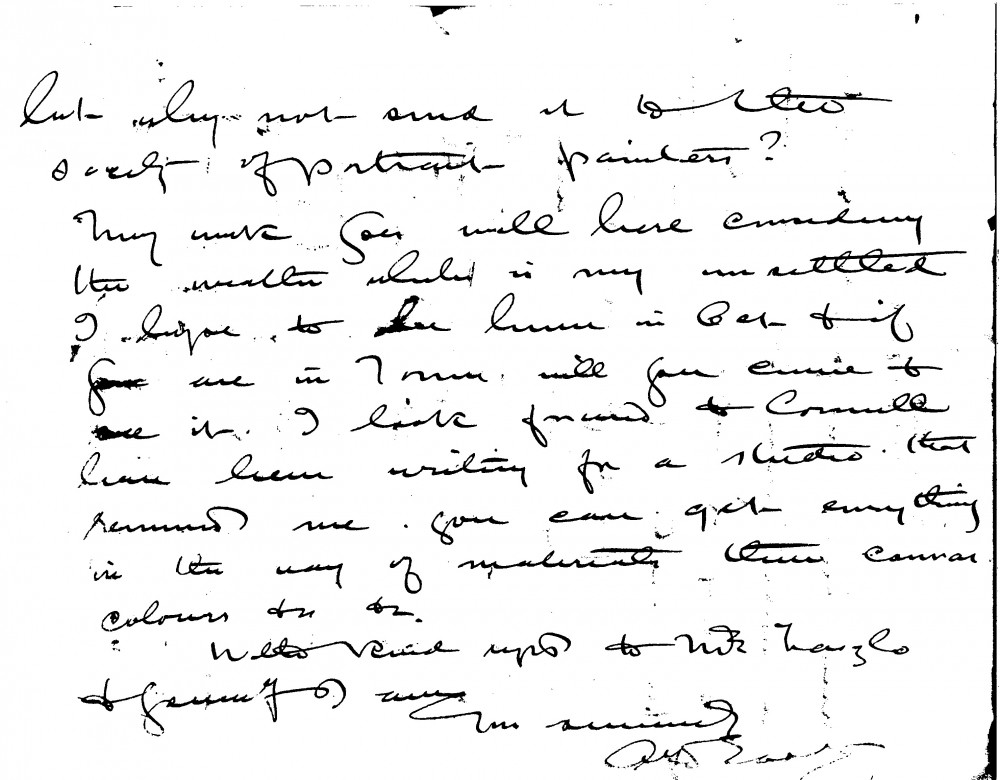 but why not send it to the
society of portrait painters?
My work goes well here considering
the weather which is very unsettled
I hope to be home in Oct & if
you are in Town will you come &
see it. I look forward to Cornwall
have been writing for a studio. that
reminds me. you can get everything
in the way of materials there canvas
colours &c &c.
With kind regds to Mrs Laszlo
& yourself I am
Yrs sincerely